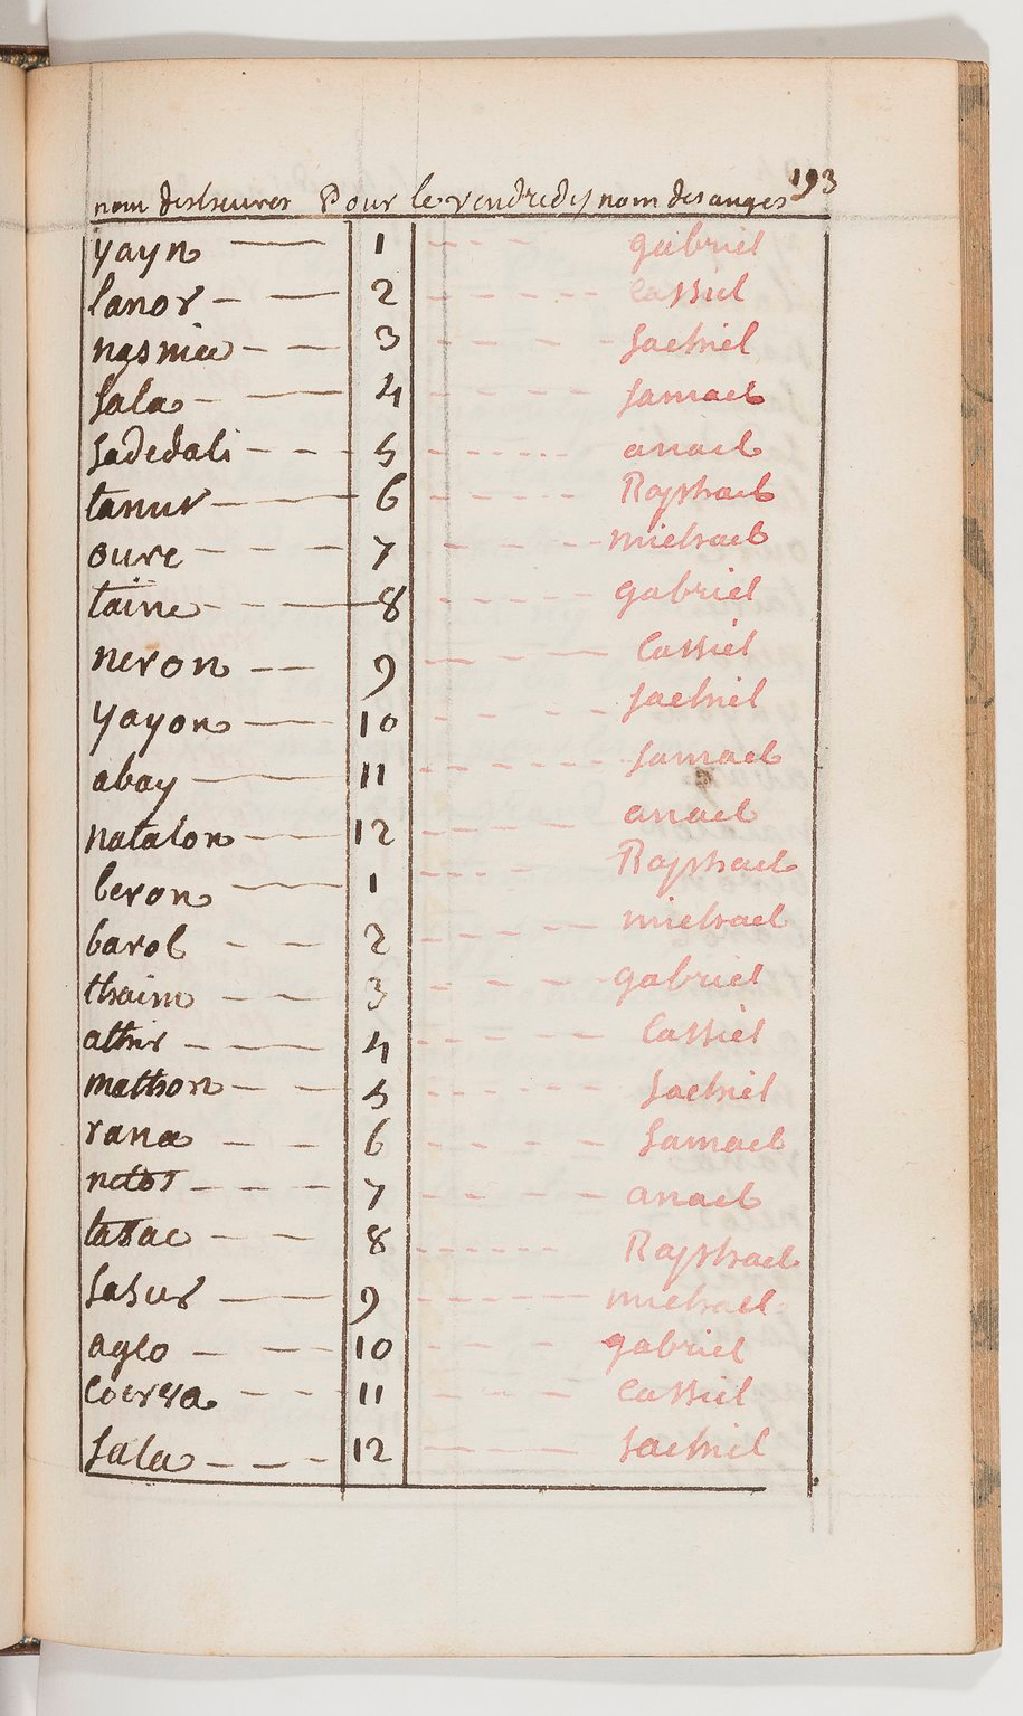 193
nom des heures Pour le vendredy nom des anges
yayn 1 gabriel
lanor 2 Cassiel
nasnia 3 sachiel
sala 4 samael
sadedali 5 anael
tanur 6 Raphael
oure 7 michael
taine 8 gabriel
neron 9 Cassiel
yayon 10 sachiel
abay 11 samael
natalon 12 anael
beron 1 Raphael
barol 2 michael
thaim 3 gabriel
athir 4 Cassiel
mathon 5 sachiel
rana 6 samael
netos 7 anael
tassac 8 Raphael
sasur 9 michael
aglo 10 gabriel
11 Cassiel
sala 12 sachiel